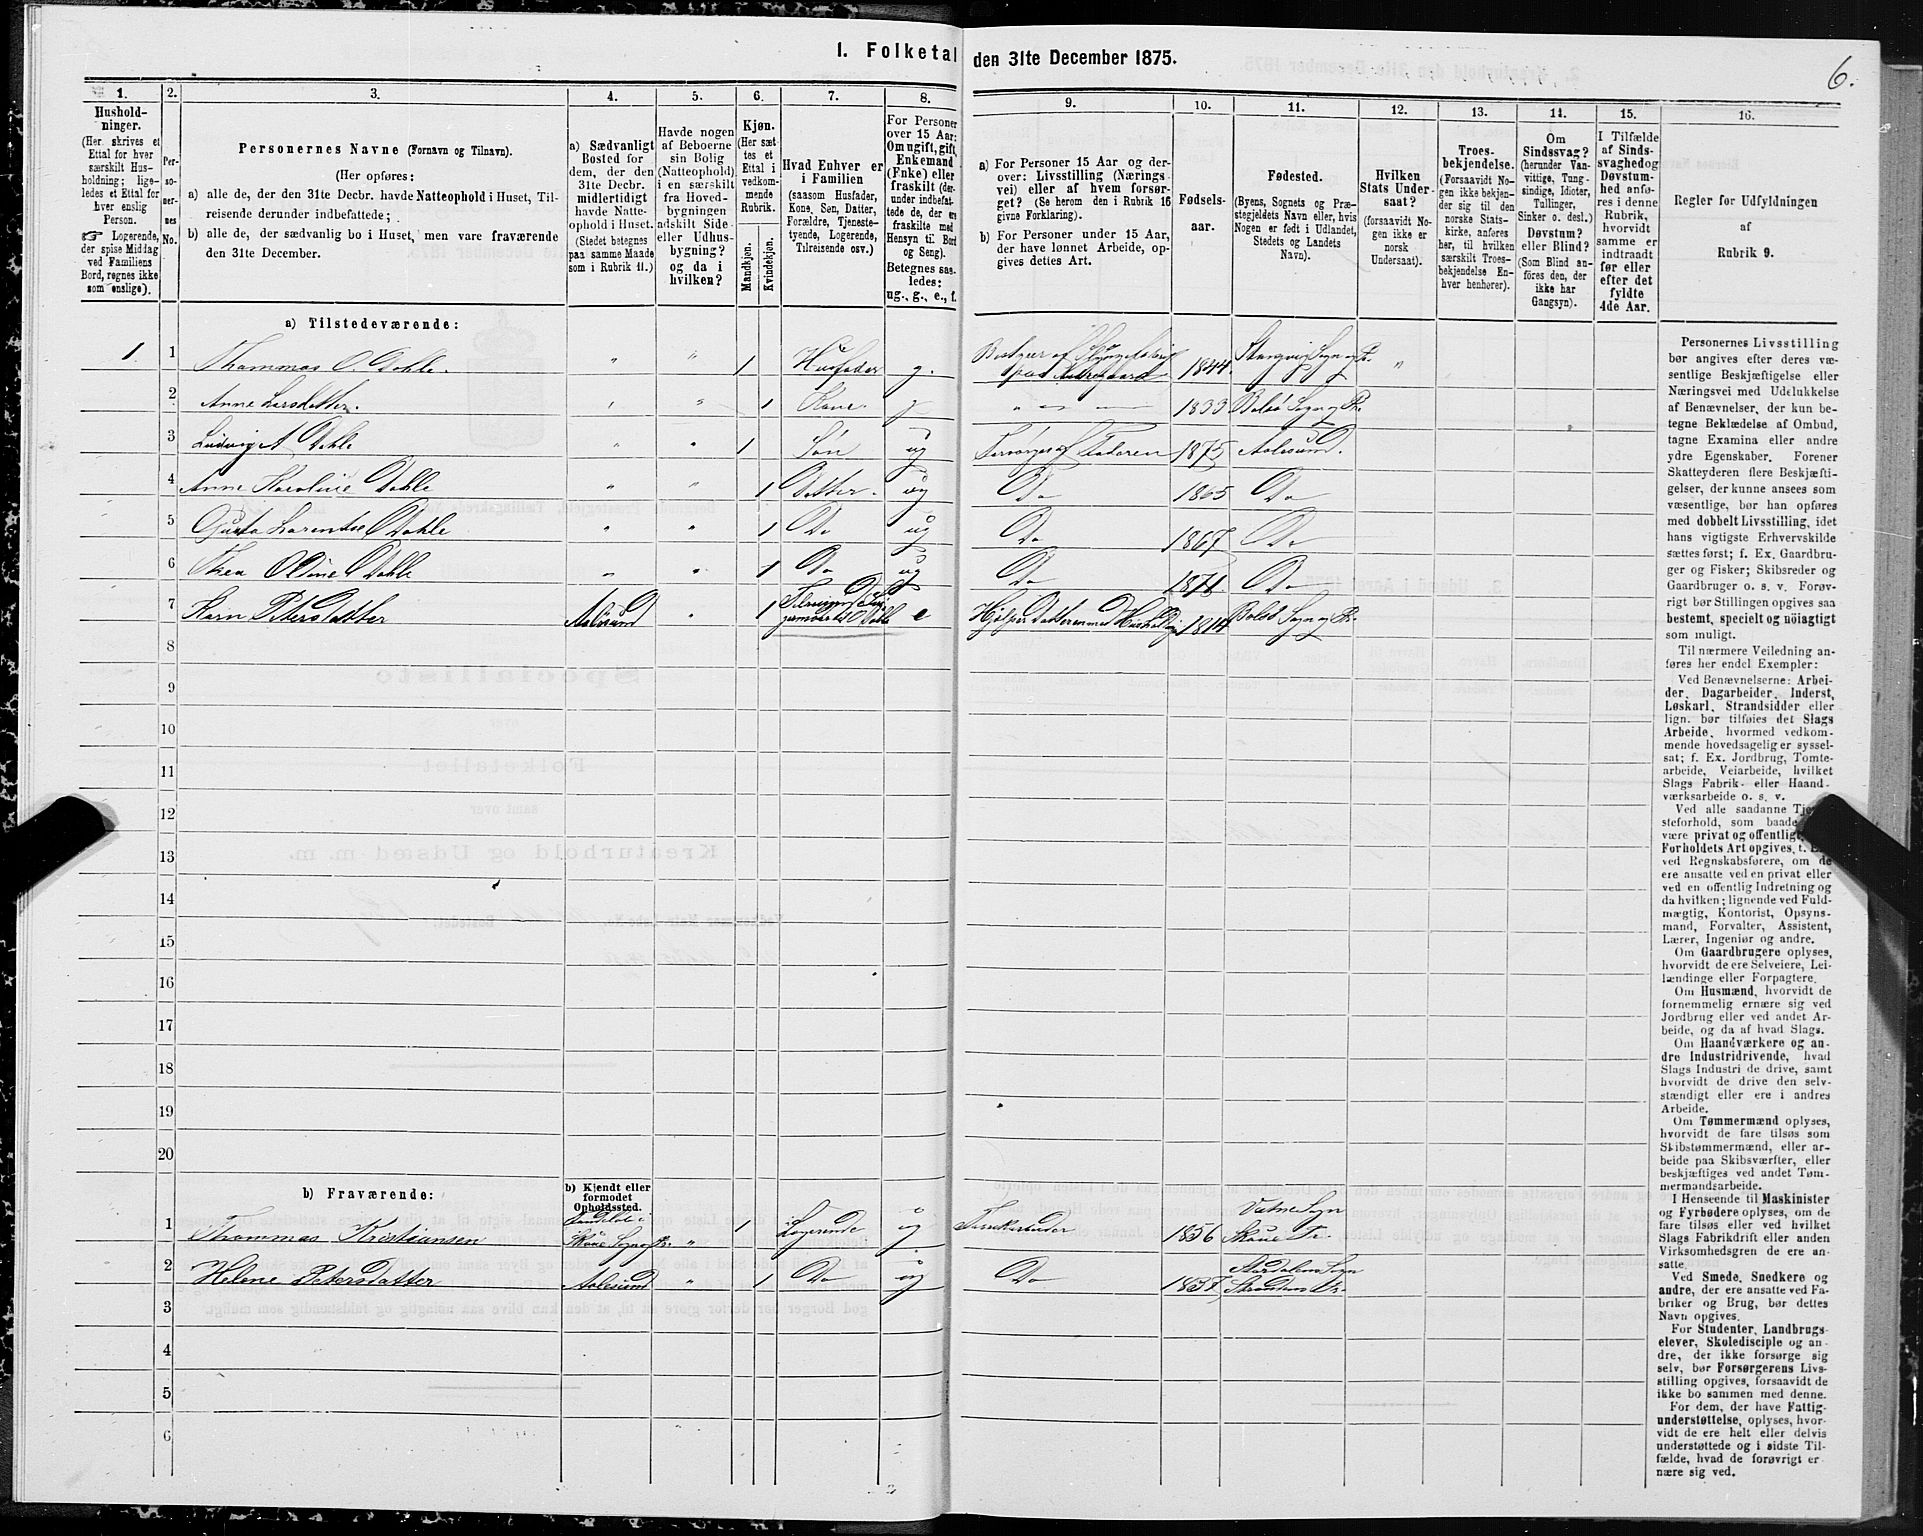 1. Folketal den 31te December 1875.
6.
1.
Hushold-
ninger.
(Her skrives et
Ettal for hver
særskilt Hus-
holdning; lige-
ledes et Ettal for
hver enslig
Person.
☞ Logerende,
der spise Middag
ved Familiens
Bord, regnes ikke
som enslige).
2.
Per-
so-
ner-
nes
No.
3.
Personernes Navne (Fornavn og Tilnavn).
(Her opføres:
a) alle de, der den 31te Decbr. havde Natteophold i Huset, Til-
reisende derunder indbefattede;
b) alle de, der sædvanlig bo i Huset, men vare fraværende
den 31te December.
4.
a) Sædvanligt
Bosted for
dem, der den
31te Decbr.
midlertidigt
havde Natte-
ophold i Huset.
(Stedet betegnes
paa samme Maade
som i Rubrik 11.)
5.
Havde nogen
af Beboerne
sin Bolig
(Natteophold)
i en særskilt
fra Hoved-
bygningen
adskilt Side-
eller Udhus-
bygning?
og da i
hvilken?
6.
Kjøn.
(Her sæt-
tes et
Ettal i
vedkom-
mende
Rubrik.
Mandkjøn.
Kvindekjøn.
7.
Hvad Enhver er
i Familien
(saasom Husfader,
Kone, Søn, Datter,
Forældre, Tjeneste-
tyende, Logerende,
Tilreisende osv.)
8.
For Personer
over 15 Aar:
Om ugift, gift,
Enkemand
(Enke) eller
fraskilt (der-
under indbefat-
tede de, der er
fraskilte med
Hensyn til Bord
og Seng).
Betegnes saa-
ledes:
ug., g., e., f.
9.
a) For Personer 15 Aar og der-
over: Livsstilling (Nærings-
vei) eller af hvem forsør-
get? (Se herom den i Rubrik 16
givne Forklaring).
b) For Personer under 15 Aar,
der have lønnet Arbeide, op-
gives dettes Art.
10.
Fødsels-
aar.
11.
Fødested.
(Byens, Sognets og Præ-
stegjeldets Navn eller, hvis
Nogen er født i Udlandet,
Stedets og Landets
Navn).
12.
Hvilken
Stats Under-
saat?
(forsaavidt No-
gen ikke er
norsk
Undersaat).
13.
Troes-
bekjendelse.
(Forsaavidt No-
gen ikke bekjen-
der sig til den
norske Stats-
kirke, anføres
her, til hvilken
særskilt Troes-
bekjendelse En-
hver henhører).
14.
Om
Sindssvag?
(herunder Van-
vittige, Tung-
sindige, Idioter,
Tullinger,
Sinker o. desl.)
Døvstum?
eller Blind?
(Som Blind an-
føres den, der
ikke har
Gangsyn).
15.
I Tilfælde
af Sinds-
svaghed og
Døvstum-
hed anfø-
res i denne
Rubrik,
hvorvidt
samme er
indtraadt
før eller
efter det
fyldte
4de Aar.
16.
Regler for Udfyldningen
af
Rubrik 9.
a) Tilstedeværende:
1 1 Thommas O. Dahle. " " 1 Husfader g. Bestyrer af 1844. Stangvig Sogn og Pr. "
2 Anne Larsdatter. " " 1 Kone. g " 1833 Bolsø Sogn og Pr.
3 Ludvig A Dahle " " 1 Søn ug Forsørges af Faderen 1875 Aalesund.
4 Anne Karoline Dahle " " 1 Datter. ug Do 1865 Do
5 Gusta Larentse Dahle " " 1 Do ug Do 1867 Do
6 Thea Oldine Dahle " " 1 Do ug Do 1871. Do
7 Karn Petersdatter Aalesund " 1 e Hjælper Datteren med Husholdn. 1814 Bolsø Sogn og Pr.
8
9
10
11
12
13
14
15
16
17
18
19
20
b) Fraværende:
b) Kjendt eller
formodet
Opholdssted.
1 Thommas Kristiansen Sogn og Pr. " 1 Logerende ug 1856 Vatne Sogn
Skoue Pr.
2 Helene Petersdatter Aalesund " 1 Do ug Do 1857 Sogn
Pr.
3
4
5
6
Personernes Livsstilling
bør angives efter deres væ-
sentlige Beskjæftigelse eller
Næringsvei med Udelukkelse
af Benævnelser, der kun be-
tegne Beklædelse af Ombud,
tagne Examina eller andre
ydre Egenskaber. Forener
Skatteyderen flere Beskjæfti-
gelser, der kunne ansees som
væsentlige, bør han opføres
med dobbelt Livsstilling, idet
hans vigtigste Erhvervskilde
sættes først; f. Ex. Gaardbru-
ger og Fisker; Skibsreder og
Gaardbruger o. s. v. Forøv-
rigt bør Stillingen opgives saa
bestemt, specielt og nöiagtigt
som muligt.
Til nærmere Veiledning an-
føres her endel Exempler:
Ved Benævnelserne: Arbei-
der, Dagarbeider, Inderst,
Løskarl, Strandsidder eller
lign. bør tilføies det Slags
Arbeide, hvormed vedkom-
mende hovedsagelig er syssel-
sat; f. Ex. Jordbrug, Tomte-
arbeide, Veiarbeide, hvilket
Slags Fabrik- eller Haand-
værksarbeide o. s. v.
Ved alle saadanne Tje
steforhold, som baade
være privat og offentlig
Forholdets Art opgives, t. E
ved Regnskabsførere, om de
ere ansatte ved en privat eller
ved en offentlig Indretning og
da hvilken; lignende ved Fuld-
mægtig, Kontorist, Opsyns-
mand, Forvalter, Assistent,
Lærer, Ingeniør og andre.
Om Gaardbrugere oplyses,
hvorvidt de ere Selveiere, Lei-
lændinge eller Forpagtere.
Om Husmænd, hvorvidt de
fornemmelig ernære sig ved
Jordbrug eller ved andet Ar-
beide, og da af hvad Slags.
Om Haandværkere og an-
dre Industridrivende, hvad
Slags Industri de drive, samt
hvorvidt de drive den selv-
stændigt eller ere i andres
Arbeide.
Om Tømmermænd oplyses,
hvorvidt de fare tilsøs som
Skibstømmermænd, eller ar-
beide paa Skibsværfter, eller
beskjæftiges ved andet Tøm-
mermandsarbeide.
I Henseende til Maskinister
og Fyrbødere oplyses, om de
fare tilsøs eller ved hvilket
Slags Fabrikdrift eller anden
Virksomhedsgren de ere an-
satte.
Ved Smede, Snedkere og
andre, der ere ansatte ved Fa-
briker og Brug, bør dettes
Navn opgives.
For Studenter, Landbrugs-
elever, Skoledisciple og an-
dre, der ikke forsørge sig
selv, bør Forsørgerens Livs-
stilling opgives, forsaavidt de
ikke bo sammen med denne.
For dem, der have Fattig-
understøttelse, oplyses, hvor-
vidt de ere helt eller delvis
understøttede og i sidste Til-
fælde, hvad de forøvrigt er
nære sig ved.